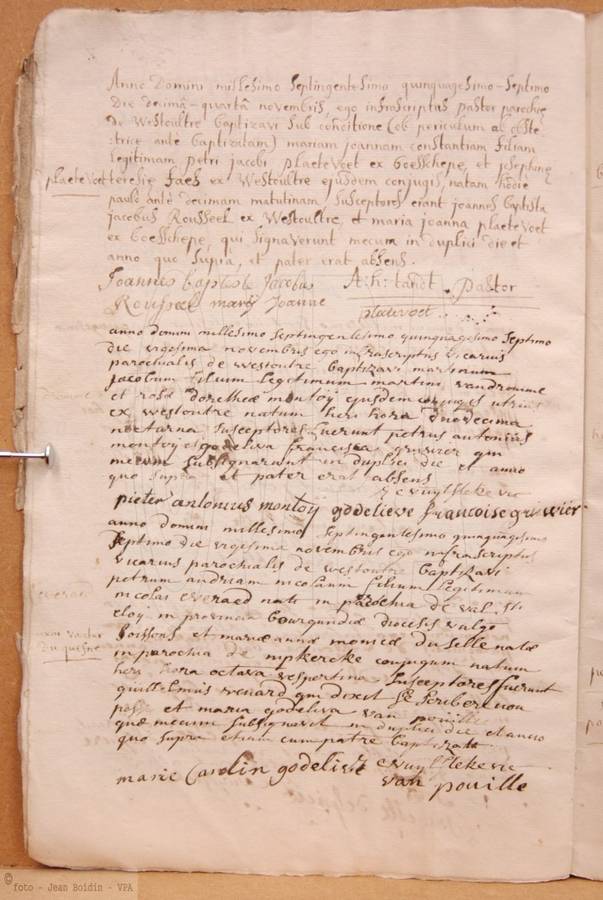 Anno Domini millesimo Septingentesimo quinquagesimo-Septimo
Die decimâ-quartâ novembris, ego infrascriptus pastor parochiæ
de Westoultre baptizavi sub conditione (ob periculum ab obste
:trice ante baptizatam) mariam joannam constantiam filiam
legitimam petri jacobi plaetevoet ex boesschepe, et josephinæ
plaetevoet
teresiæ faes ex Westoultre ejusdem conjugis, natam hodie
paulo ante decimam matutinam, susceptores erant joannes baptista
jacobus Rousseel ex Westoultre, et maria joanna plaetevoet
ex boesschepe, qui signaverunt mecum in duplici die et
anno quo supra, et pater erat absens.
Joannes baptiste Jacobus A:h: tandt Pastor
Rousseel marij Joanne plaetevoet
anno domini millesimo septingentesimo quinquagesimo Septimo
die vigesima novembris ego infrascriptus vicarius
parochialis de westoutre baptizavi martinum
Jacobum filium legitimum martini vandromme
et rosæ dorotheæ montoy ejusdem conjugis utrius
ex westoutre natum heri hora duodecima
nocturna Susceptores fuerunt petrus antonius
montoij et godeliva francisca gruwier qui
mecum Subsignarunt in duplici die et anno
quo supra et pater erat absens
vuylstekevic
pieter antonius montoij godelieve francoise griwier
anno domini millesimo Septingentesimo quinquagesimo
Septimo die vigesima novembris ego infrascriptus
vicarius parochialis de westoutre baptisavi
petrum andream nicolaum filium legitimum
everaed
nicolai everaed nati in parochia de val. sti
eloy in provincia bourgundiæ diocesis valgo
Soissons et mariæ annæ monicæ du selle natæ
du quesne
in parochia de nipkercke conjugum natum
heri hora octava vespertina Susceptores fuerunt
guillelmus renard qui dixit Se Scribere non
posse et maria godeliva van pouille
quæ mecum subsignavit in duplici die et anno
quo supra etiam cum patre
vuylstekevic
marie Carolin godelieve van pouille
© foto - Jean Boidin - VPA